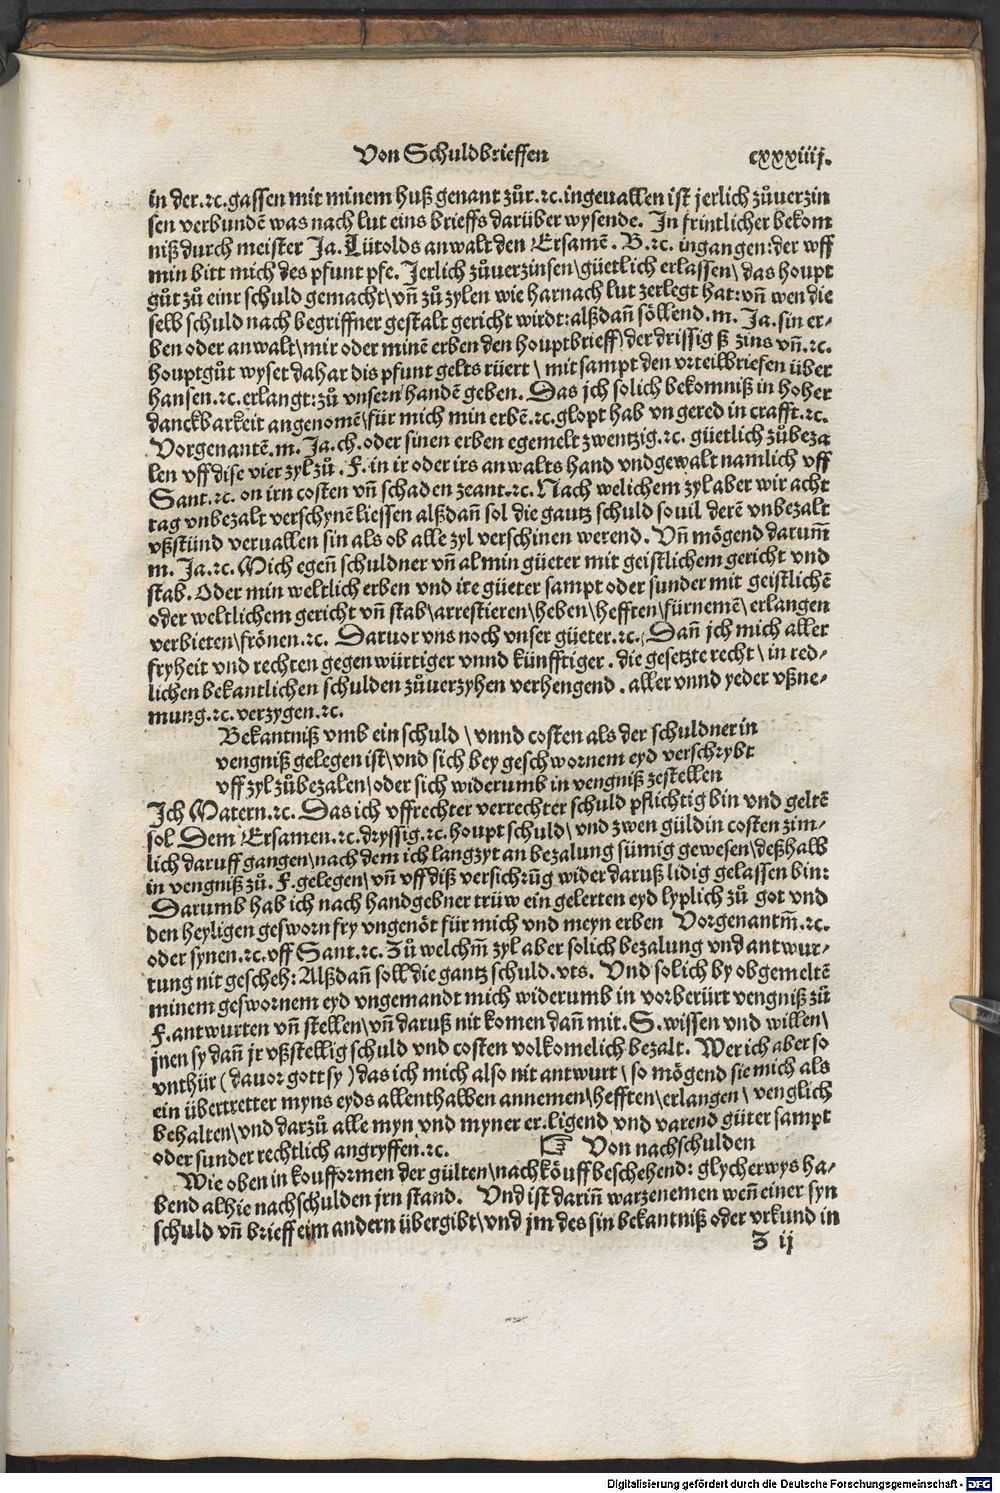 Von Schuldbrieffen cxxxiiij.
in der.ꝛc.gassen mit minem huß genant zůr.ꝛc.ingeuallen ist jerlich zůuerzin
sen verbundē was nach lut eins brieffs darüber wysende. In frintlicher bekom
niß durch meister Ja. Lütolds anwalt den Ersamē. B.ꝛc. ingangen: der vff
min bitt mich des pfunt pfe. Jerlich zůuerzinsen\güetlich erlassen\ das houpt
gůt zů einr schuld gemacht\vñ zů zylen wie harnach lut zerlegt hat: vñ wen die
selb schuld nach begriffner gestalt gericht wirdt: alßdañ söllend. m. Ja. sin er⸗
ben oder anwalt\mir oder minē erben den houptbrieff\der drissig ß zins vñ.ꝛc.
houptgůt wyset dahar dis pfunt gelts rüert \ mit sampt den vrteilbriefen über
hansen.ꝛc.erlangt: zů vnsern handē geben. Das jch solich bekomniß in hoher
danckbarkeit angenomē\für mich min erbē.ꝛc.glopt hab vn gered in crafft.ꝛc.
Vorgenantē.m. Ja.ch.oder sinen erben egemelt zwentzig.ꝛc. güetlich zůbeza
len vff dise vier zyl zů. F. in ir oder irs anwalts hand vnd gewalt namlich vff
Sant.ꝛc. on irn costen vñ schaden zeant.ꝛc. Nach welichem zyl aber wir acht
tag vnbezalt verschynē liessen alßdañ sol die gantz schuld souil derē vnbezalt
vßstünd veruallen sin als ob alle zyl verschinen werend. Vñ mögend darum̄
m. Ja.ꝛc. Mich egeñ schuldner vñ al min güeter mit geistlichem gericht vnd
stab. Oder min weltlich erben vnd ire güeter sampt oder sunder mit geistlichē
oder weltlichem gericht vñ stab\arrestieren\heben\hefften\fürnemē\erlangen
verbieten\frönen.ꝛc. Daruor vns noch vnser güeter.ꝛc. Dañ jch mich aller
fryheit vnd rechten gegenwürtiger vnnd künfftiger. die gesetzte recht\ in red⸗
lichen bekantlichen schulden zůuerzyhen verhengend. aller vnnd yeder vßne⸗
mung.ꝛc.verzygen.ꝛc.
Bekantniß vmb ein schuld \ vnnd costen als der schuldner in
vengniß gelegen ist\vnd sich bey geschwornem eyd verschrybt
vff zyl zůbezalen\oder sich widerumb in vengniß zestellen
Jch Matern.ꝛc. Das ich vffrechter verrechter schuld pflichtig bin vnd geltē
sol Dem Ersamen.ꝛc.dryssig.ꝛc.houptschuld\ vnd zwen güldin costen zim⸗
lich daruff gangen\nach dem ich langzyt an bezalung sümig gewesen\deßhalb
in vengniß zů. F. gelegen\ vñ vff diß versichrūg wider daruß lidig gelassen bin:
Darumb hab ich nach handgebner trüw ein gelerten eyd lyplich zů got vnd
den heyligen gesworn fry vngenöt für mich vnd meyn erben Vorgenantm̄.ꝛc.
oder synen.ꝛc.vff Sant.ꝛc. Zů welchm̄ zyl aber solich bezalung vnd antwur⸗
tung nit gescheh: Alßdañ soll die gantz schuld.vts. Vnd solich by obgemeltē
minem geswornem eyd vngemandt mich widerumb in vorberürt vengniß zů
F. antwurten vñ stellen\vñ daruß nit komen dañ mit. S. wissen vnd willen\
jnen sy dañ jr vßstellig schuld vnd costen volkomelich bezalt. Wer ich aber so
vnthür (dauor gott sy) das ich mich also nit antwurt\ so mögend sie mich als
ein übertretter myns eyds allenthalben annemen\hefften\erlangen\ venglich
behalten\vnd darzů alle myn vnd myner er.ligend vnd varend güter sampt
oder sunder rechtlich angryffen.ꝛc. ☞ Von nachschulden
Wie oben in koufformen der gülten\nachköuff beschehend: glycher wys ha⸗
bend alhie nachschulden jrn stand. Vnd ist dariñ warzenemen weñ einer syn
schuld vñ brieff eim andern übergibt\vnd jm des sin bekantniß oder vrkund in
Z ij
Digitalisierung gefördert durch die Deutsche Forschungsgemeinschaft - DFG